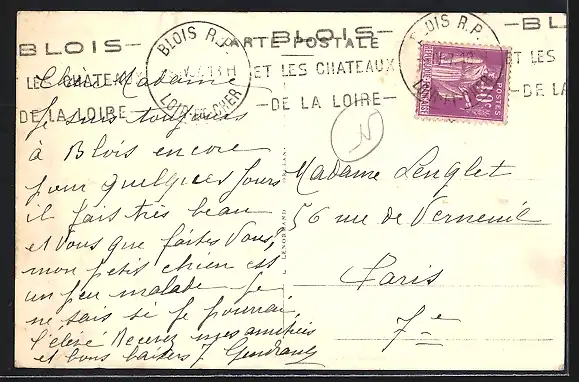 BLOIS — BLOIS — BLOIS
CARTE POSTALE
BLOIS R.P.
LOIR-ET-CHER
BLOIS R.P.
LES CHATEAUX ET LES CHATEAUX ET LES
DE LA LOIRE — DE LA LOIRE — DE LA
POSTES
Chère Madame
Je suis toujours
à Blois encore
pour quelques jours
il fais très beau
et vous que faites vous,
mon petit chien est
un peu malade je
ne sais si je pourrai
l'élévé Recevez mes amitiées
et bons baisers
N
Madame Lenglet
56 rue de Verneuil
Paris
7e
LENORMAND